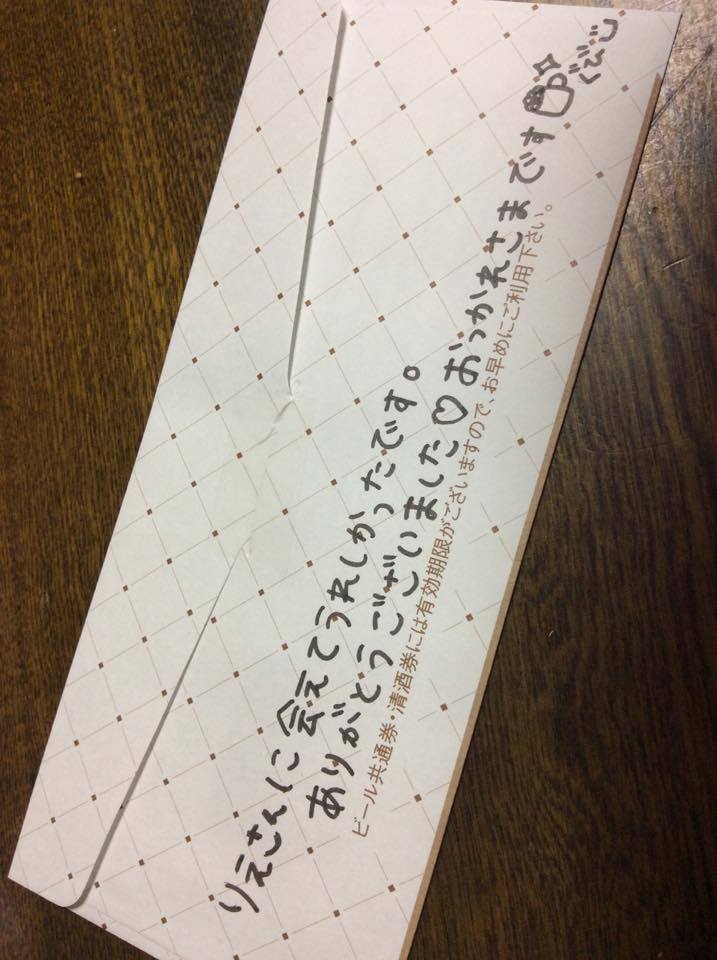 りえさんに会えてうれしかったです。
ありがとうございました♡おつかれさまです
ぐびぐび
ビール共通券・清酒券には有効期限がございますので、お早めにご利用下さい。